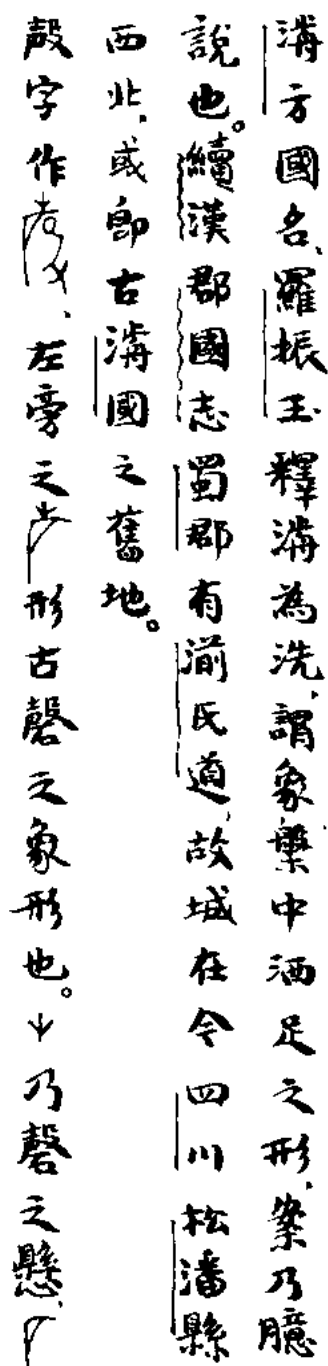 湔方國名、羅振玉釋湔為洗、謂象槃中洒足之形、案乃臆
說也。續漢郡國志蜀郡有湔氐道、故城在今四川松潘縣
西北、或即古湔國之舊地。
㱿字作、左旁之形古磬之象形也。乃磬之懸、